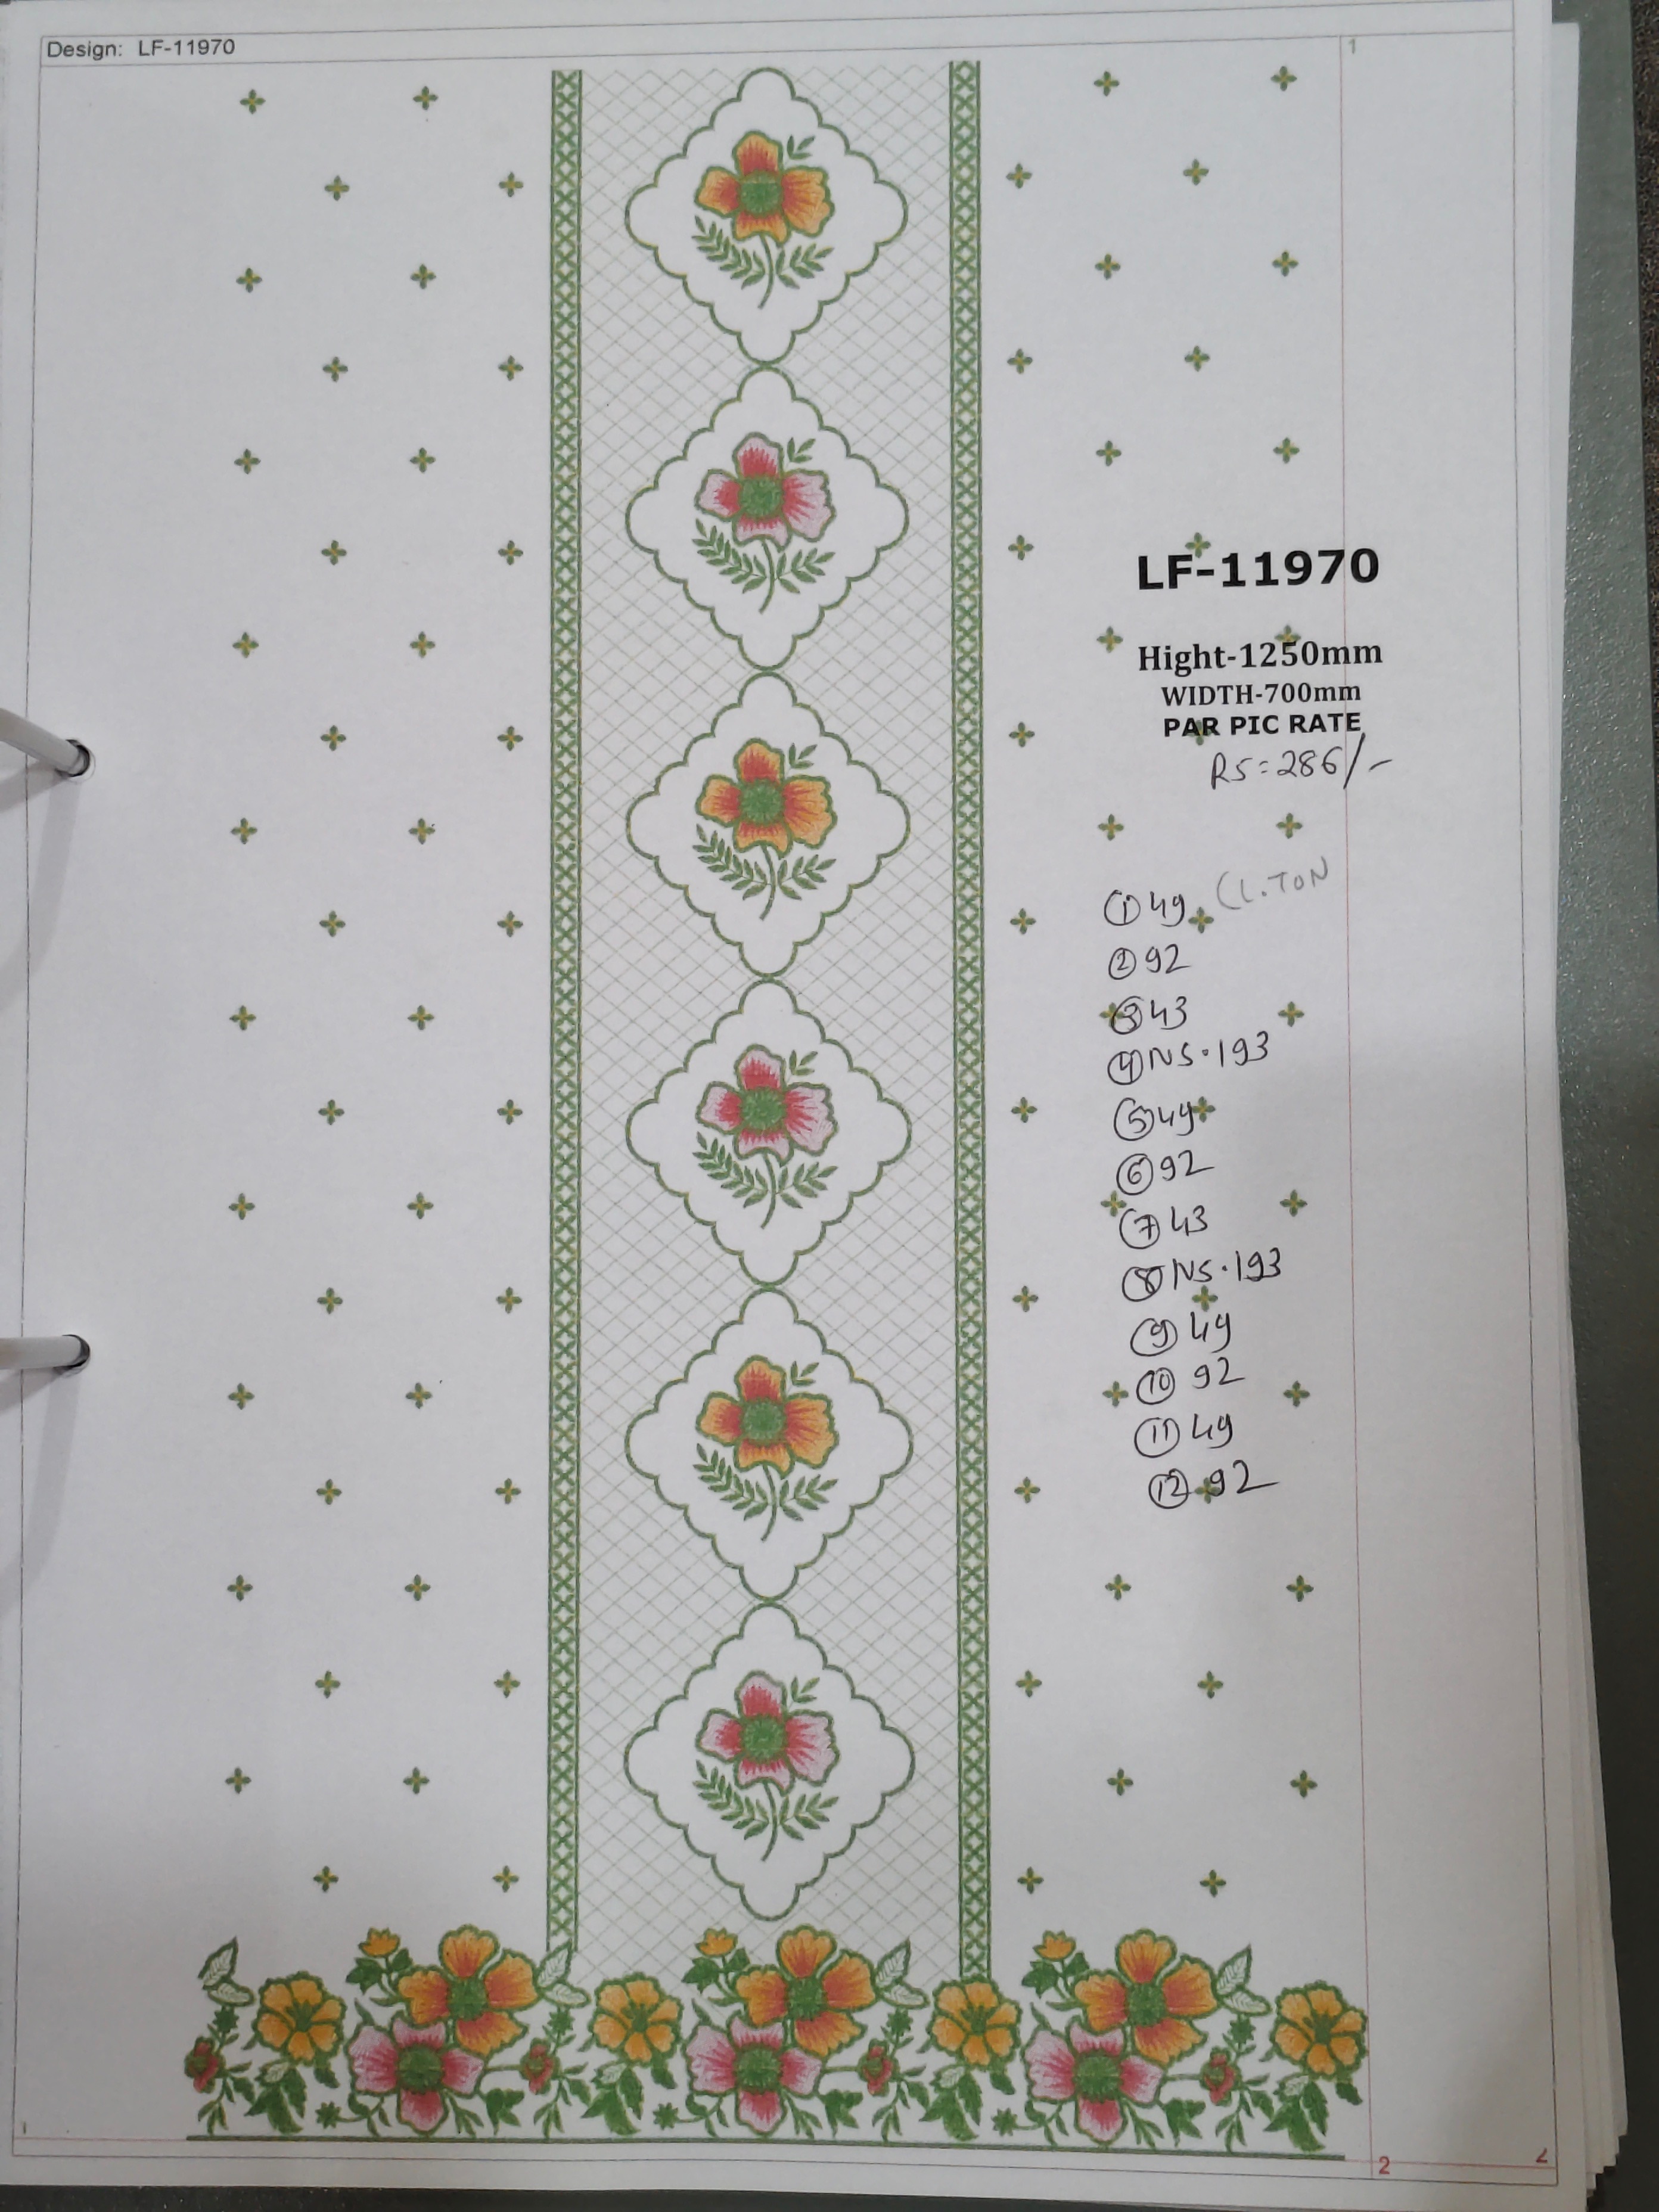 Design: LF-11970
1
LF-11970
Hight-1250mm
WIDTH-700mm
PAR PIC RATE
RS=286/-
① 49 (L.TON
② 92
③ 43
④ NS.193
⑤ 49
⑥ 92
⑦ 43
⑧ NS.193
⑨ 49
⑩ 92
⑪ 49
⑫ 92
1
2
2